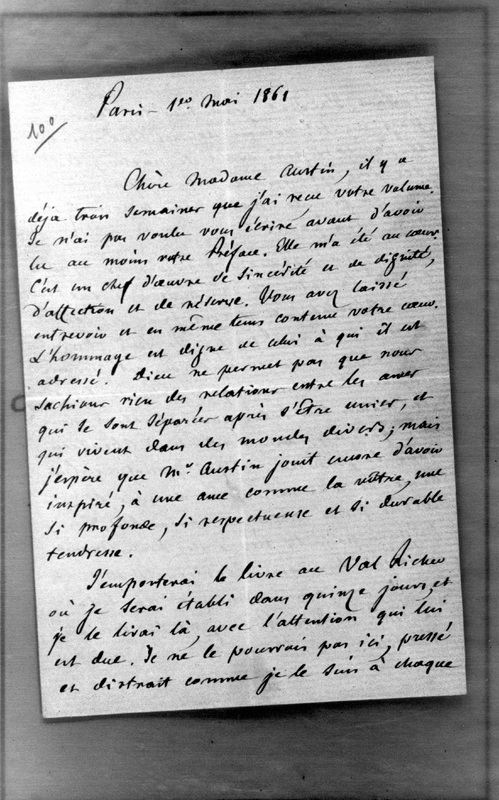 Paris - 1er Mai 1861
100
Chère Madame Austin, il y a
déja trois semaines que j'ai reçu votre volume.
Je n'ai pas voulu vous écrire avant d'avoir
lu au moins votre Préface. Elle m'a été au cœur.
C'est un chef d'œuvre de sincérité et de dignité,
d'affection et de réserve. Vous avez laissé
entrevoir et en même tems contenu votre cœur.
L'hommage est digne de celui à qui il est
adressé. Dieu ne permet pas que nous
sachions rien des relations entre les ames
qui se sont séparées après s'être unies, et
qui vivent dans des mondes divers; mais
j'espère que Mr Austin jouit encore d'avoir
inspiré, à une ame comme la vôtre, une
si profonde, si respectueuse et si durable
tendresse.
J'emporterai le livre au Val Richer
où je serai établi dans quinze jours, et
je le lirai là, avec l'attention qui lui
est due. Je ne le pourrais pas ici, pressé
et distrait comme je le suis à chaque